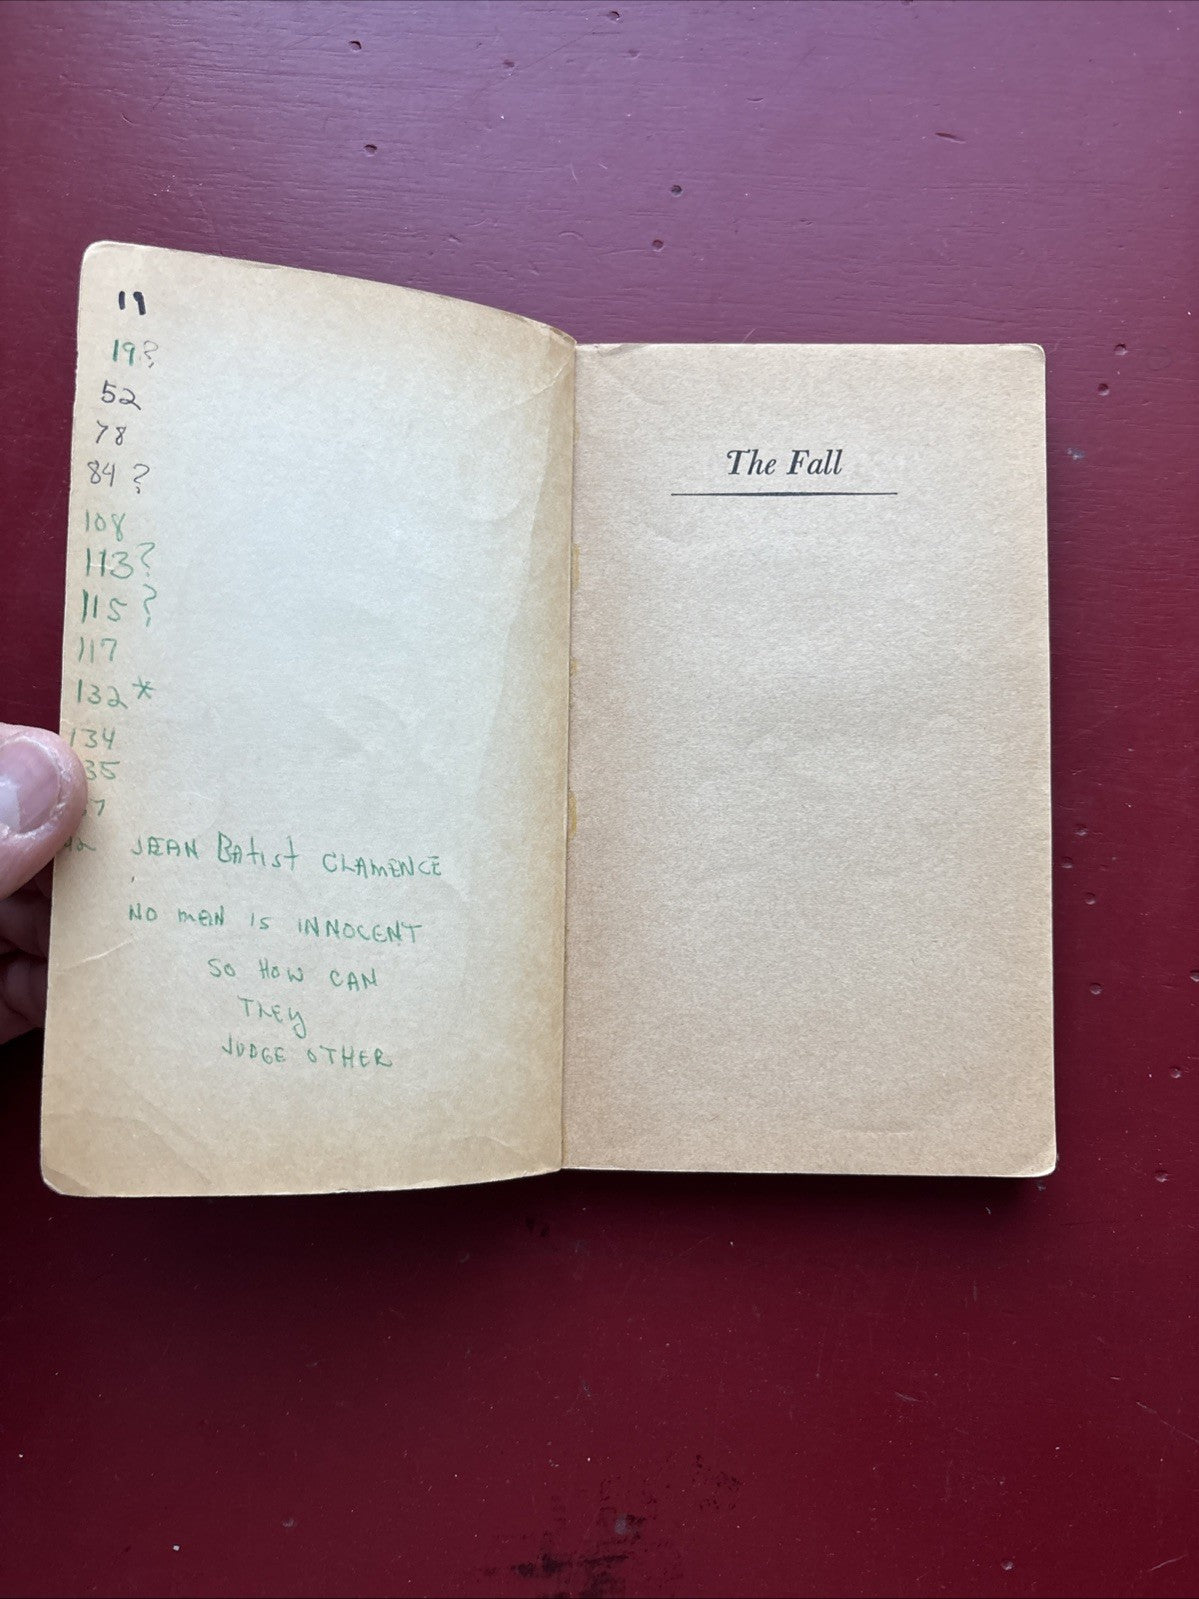 11
19?
52
78
84?
108
113?
115?
117
132*
134
35
7
JEAN Batist CLAMENCE
NO MEN IS INNOCENT
SO HOW CAN
THEY
JUDGE OTHER
The Fall